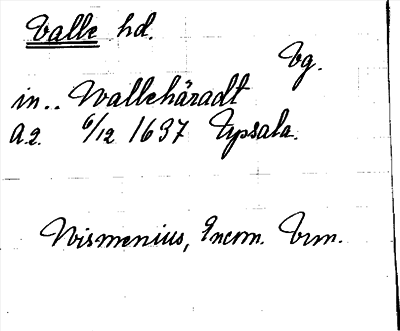 Valle hd.
Vg.
in.. Wallehäradt
A.2. 6/12 1637 Upsala.
Wismenius, Incom. Brm.